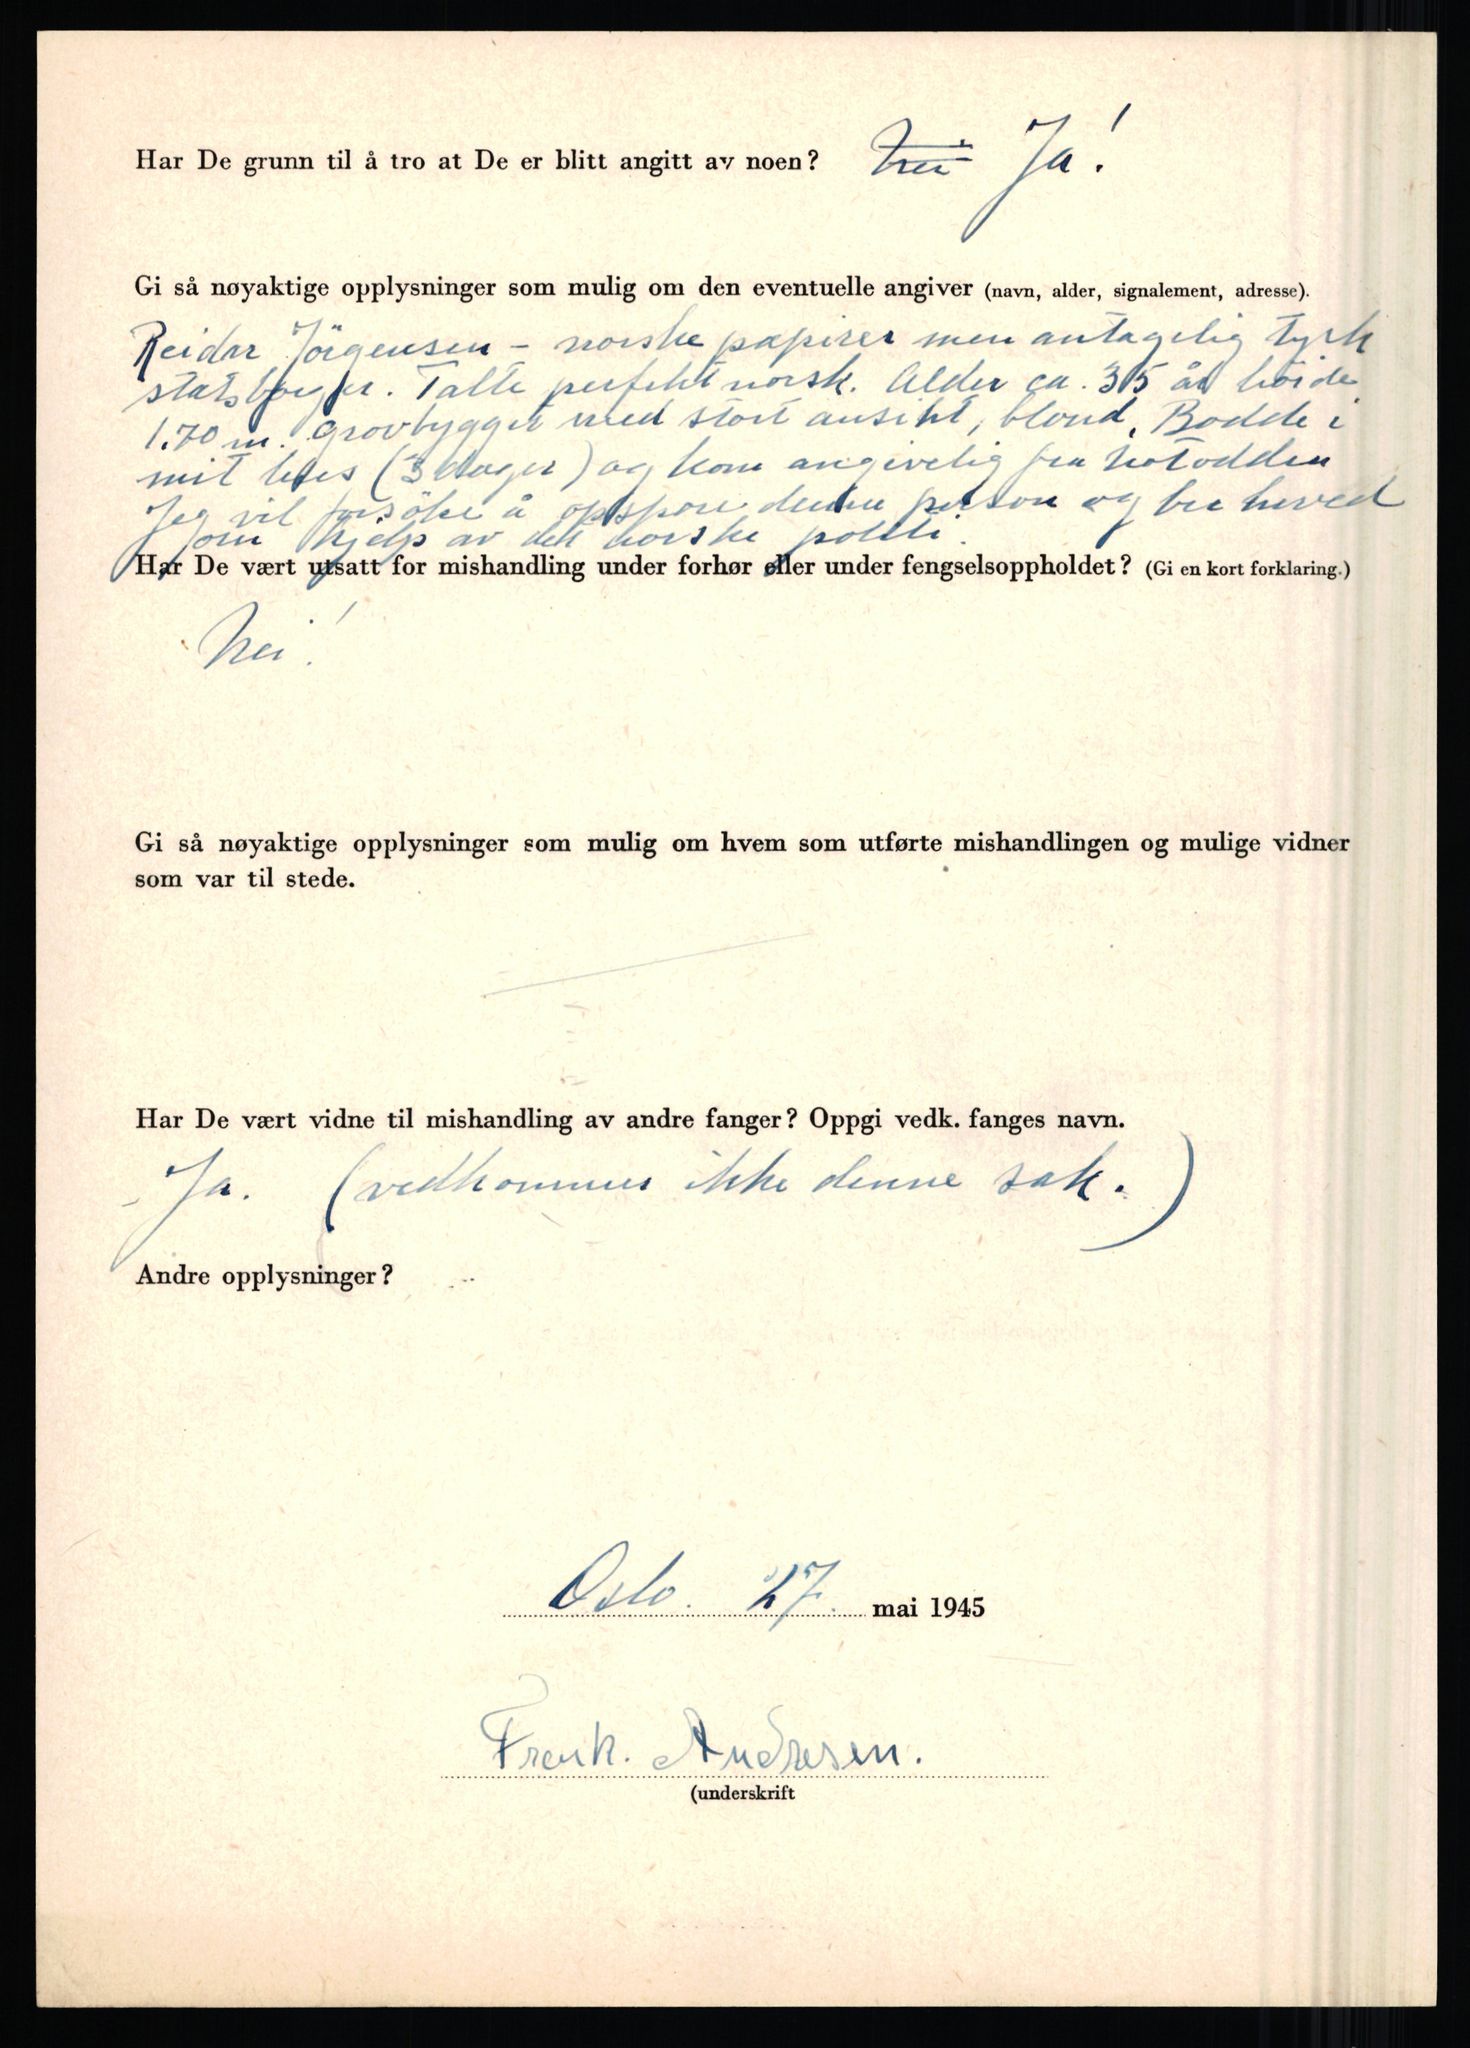 Har De grunn til å tro at De er blitt angitt av noen? Nei Ja!
Gi så nøyaktige opplysninger som mulig om den eventuelle angiver (navn, alder, signalement, adresse).
Reidar Jörgensen – norske papirer men antagelig tysk
statsborger. Talte perfekt norsk. Alder ca. 35 år höide
1.70 m. Grovbygget med stort ansikt, blond. Bodde i
mit hus (3 dager) og kom angivelig fra Notodden
Jeg vil forsöke å oppspore denne person og ber herved
om hjelp av det norske politi.
Har De vært utsatt for mishandling under forhør eller under fengselsoppholdet? (Gi en kort forklaring.)
Nei!
Gi så nøyaktige opplysninger som mulig om hvem som utførte mishandlingen og mulige vidner
som var til stede.
Har De vært vidne til mishandling av andre fanger? Oppgi vedk. fanges navn.
Ja. (vedkommer ikke denne sak.)
Andre opplysninger?
Oslo. 27. mai 1945
Frank. Andresen.
(underskrift